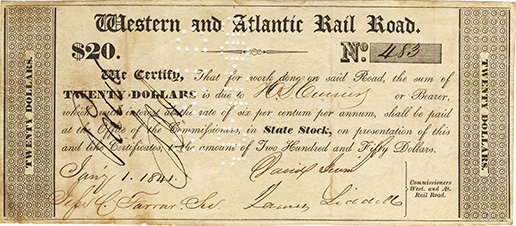 Western and Atlantic Rail Road.
$20.
No. 483
We Certify, That for work done on said Road, the sum of
TWENTY DOLLARS is due to H. S. or Bearer,
which much interest at the rate of six per centum per annum, shall be paid
at the Office of the Commissioners, in State Stock, on presentation of this
and like Certificates, to the amount of Two Hundred and Fifty Dollars.
Jan'y 1. 1841.
Daniel
Jeff C. Farrar, Sec
James Liddell
Commissioners
West. and At.
Rail Road.
TWENTY DOLLARS.
TWENTY DOLLARS.